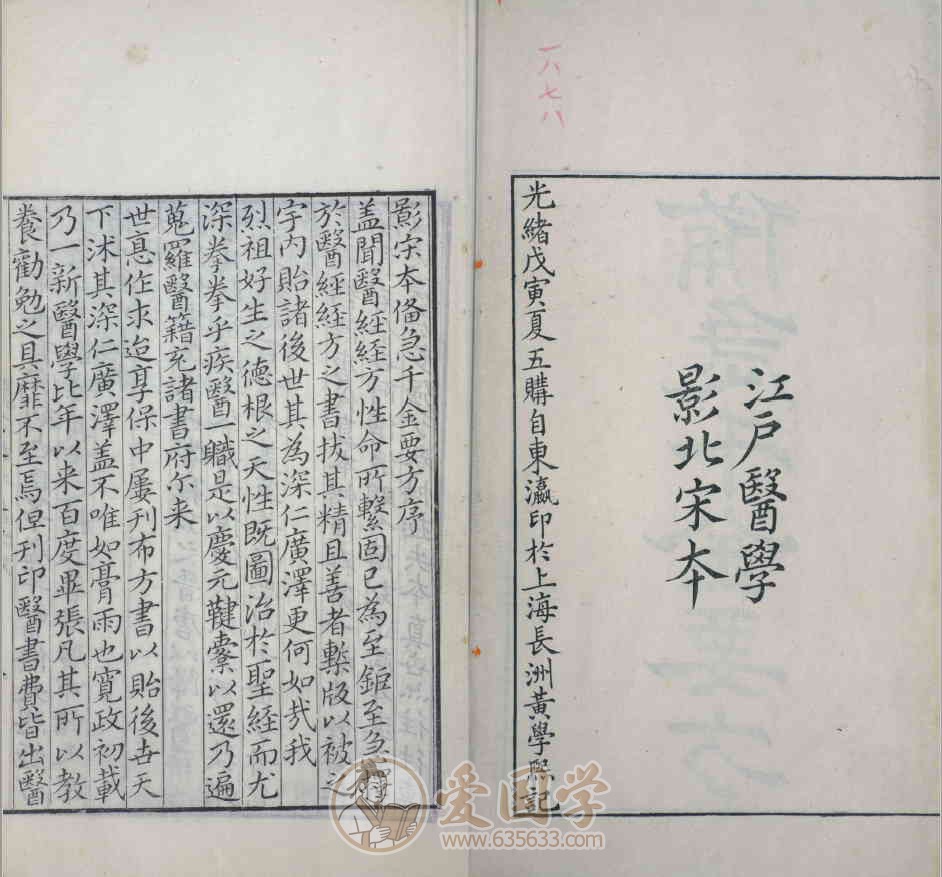 江戶醫學
影北宋本
光緒戊寅夏五購自東瀛印於上海長洲黃學熙記
一八七八
影宋本備急千金要方序
蓋聞醫經經方性命所繫固已為至鉅至急
於醫經經方之書拔其精且善者槧版以被之
宇內貽諸後世其為深仁廣澤更何如哉我
烈祖好生之德根之天性既圖治於聖經而尤
深拳拳乎疾醫一職是以慶元鞬櫜以還乃遍
蒐羅醫籍充諸書府尔来
世悳作求迨享保中屢刊布方書以貽後世天
下沐其深仁廣澤蓋不唯如膏雨也寬政初載
乃一新醫學比年以来百度畢張凡其所以教
養勸勉之具靡不至焉但刊印醫書費皆出醫
爱医学
www.635633.com